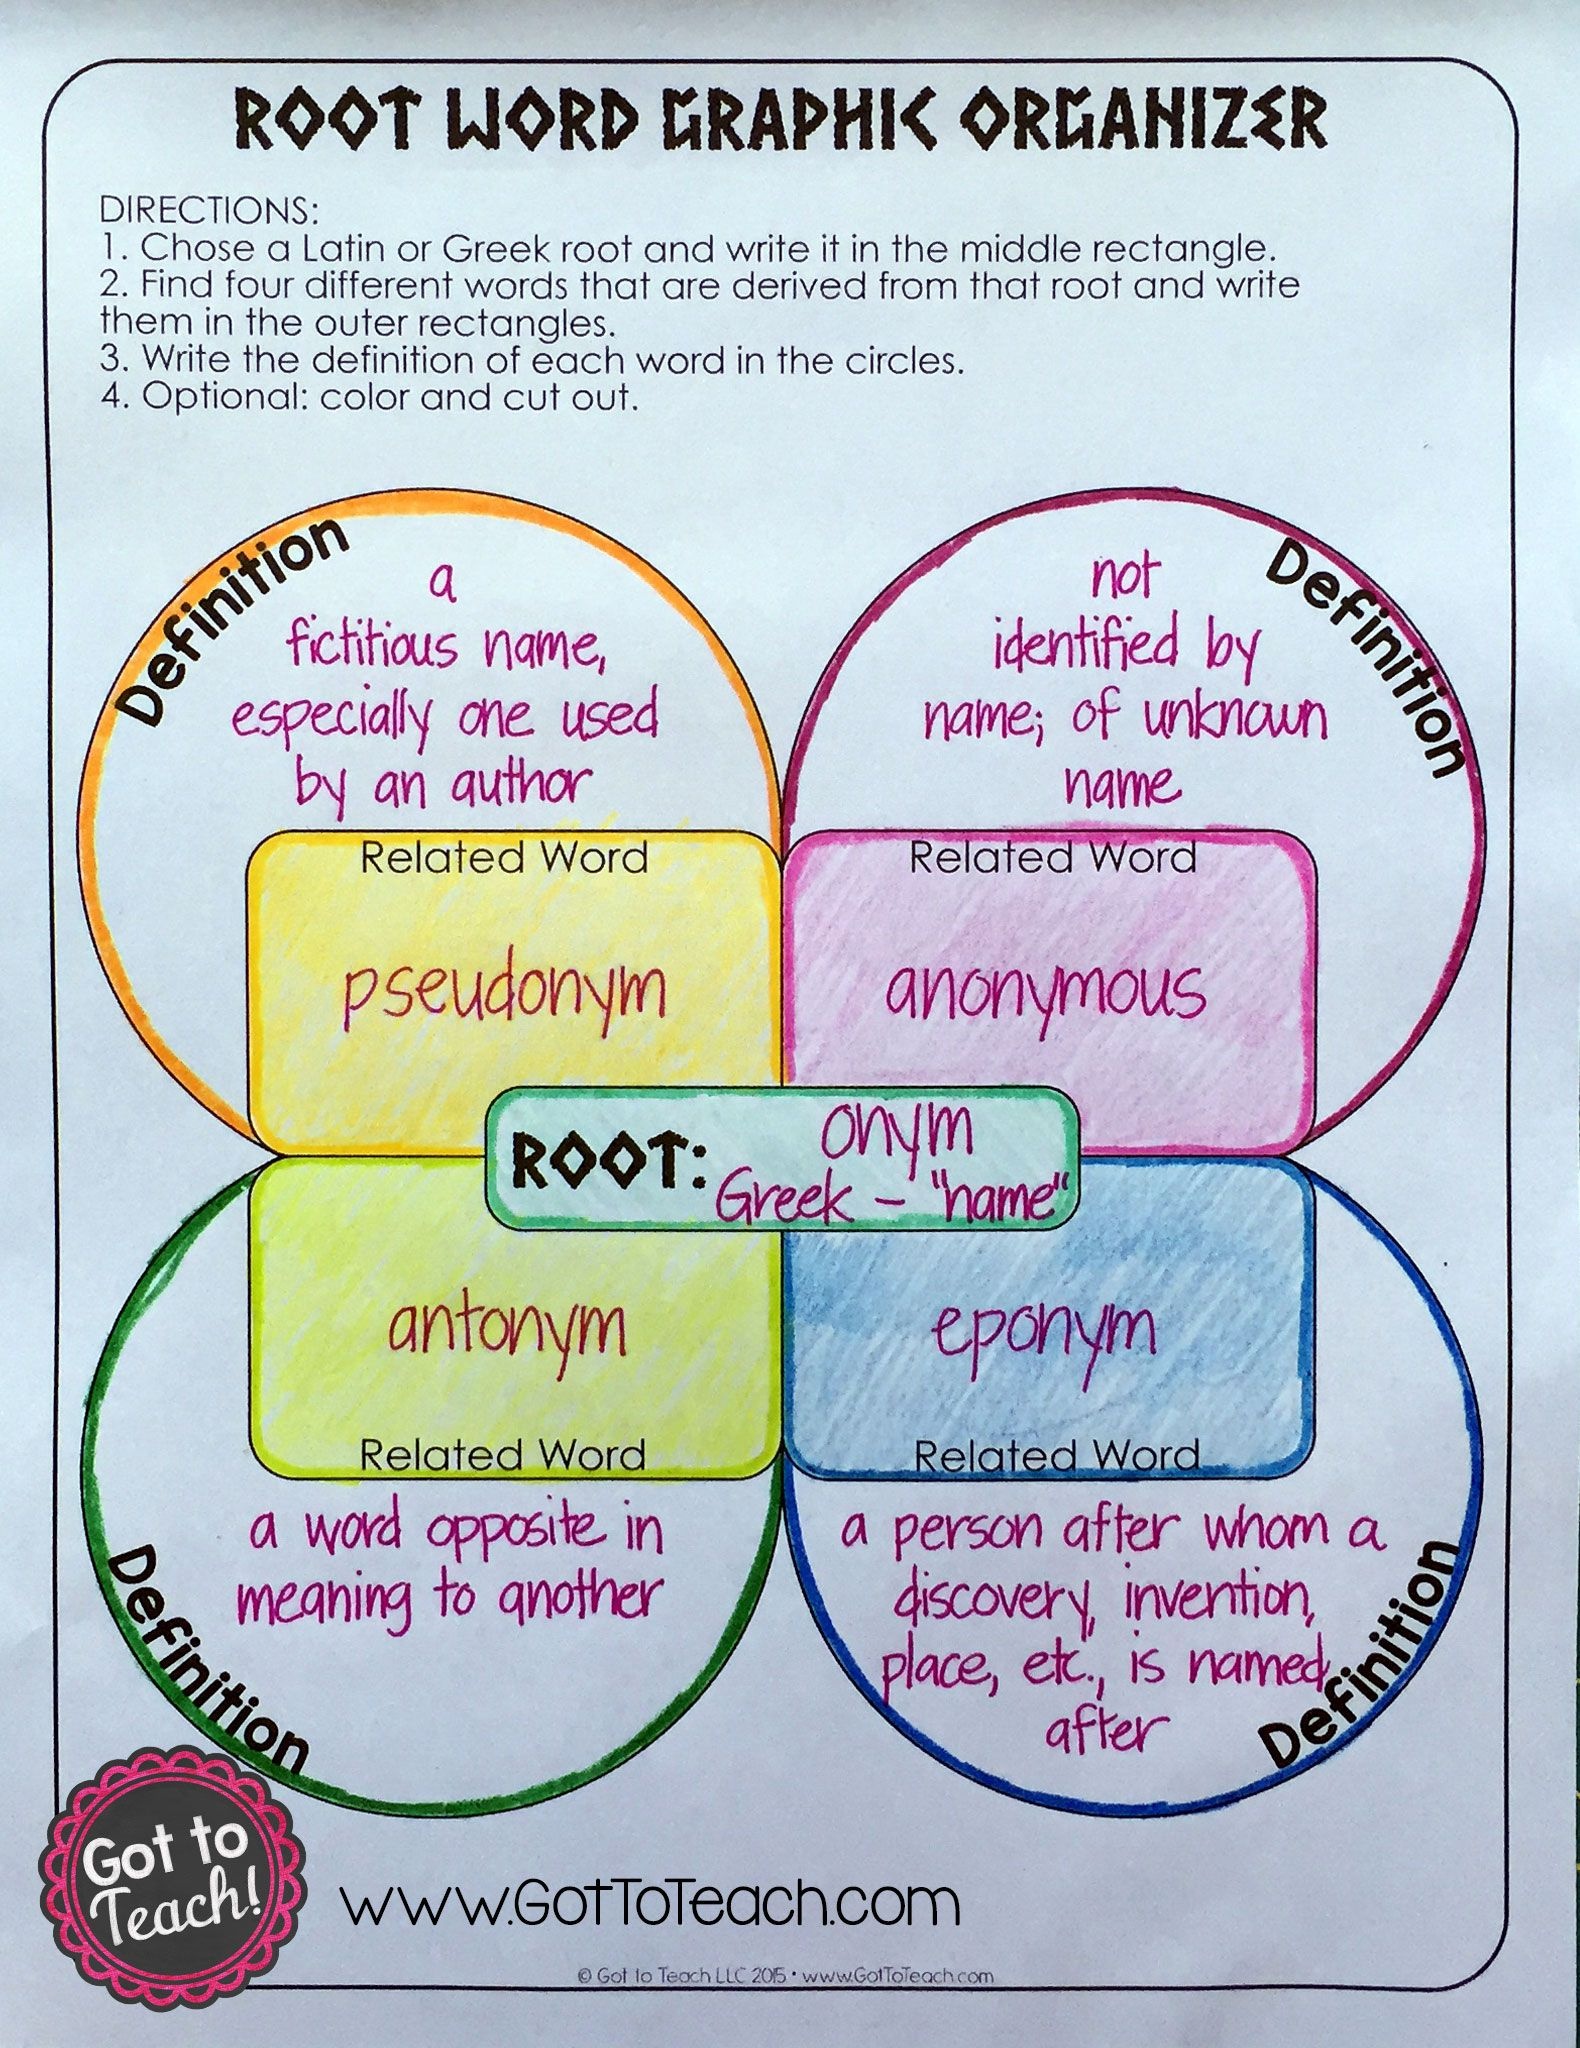 ROOT WORD GRAPHIC ORGANIZER
DIRECTIONS:
1. Chose a Latin or Greek root and write it in the middle rectangle.
2. Find four different words that are derived from that root and write
them in the outer rectangles.
3. Write the definition of each word in the circles.
4. Optional: color and cut out.
Definition
a
fictitious name,
especially one used
by an author
Related Word
pseudonym
Definition
not
identified by
name; of unknown
name
Related Word
anonymous
ROOT: onym
Greek - "name"
antonym
Related Word
a word opposite in
meaning to another
Definition
eponym
Related Word
a person after whom a
discovery, invention,
place, etc., is named
after
Definition
Got to
Teach!
www.GotToTeach.com
© Got to Teach LLC 2015 • www.GotToTeach.com